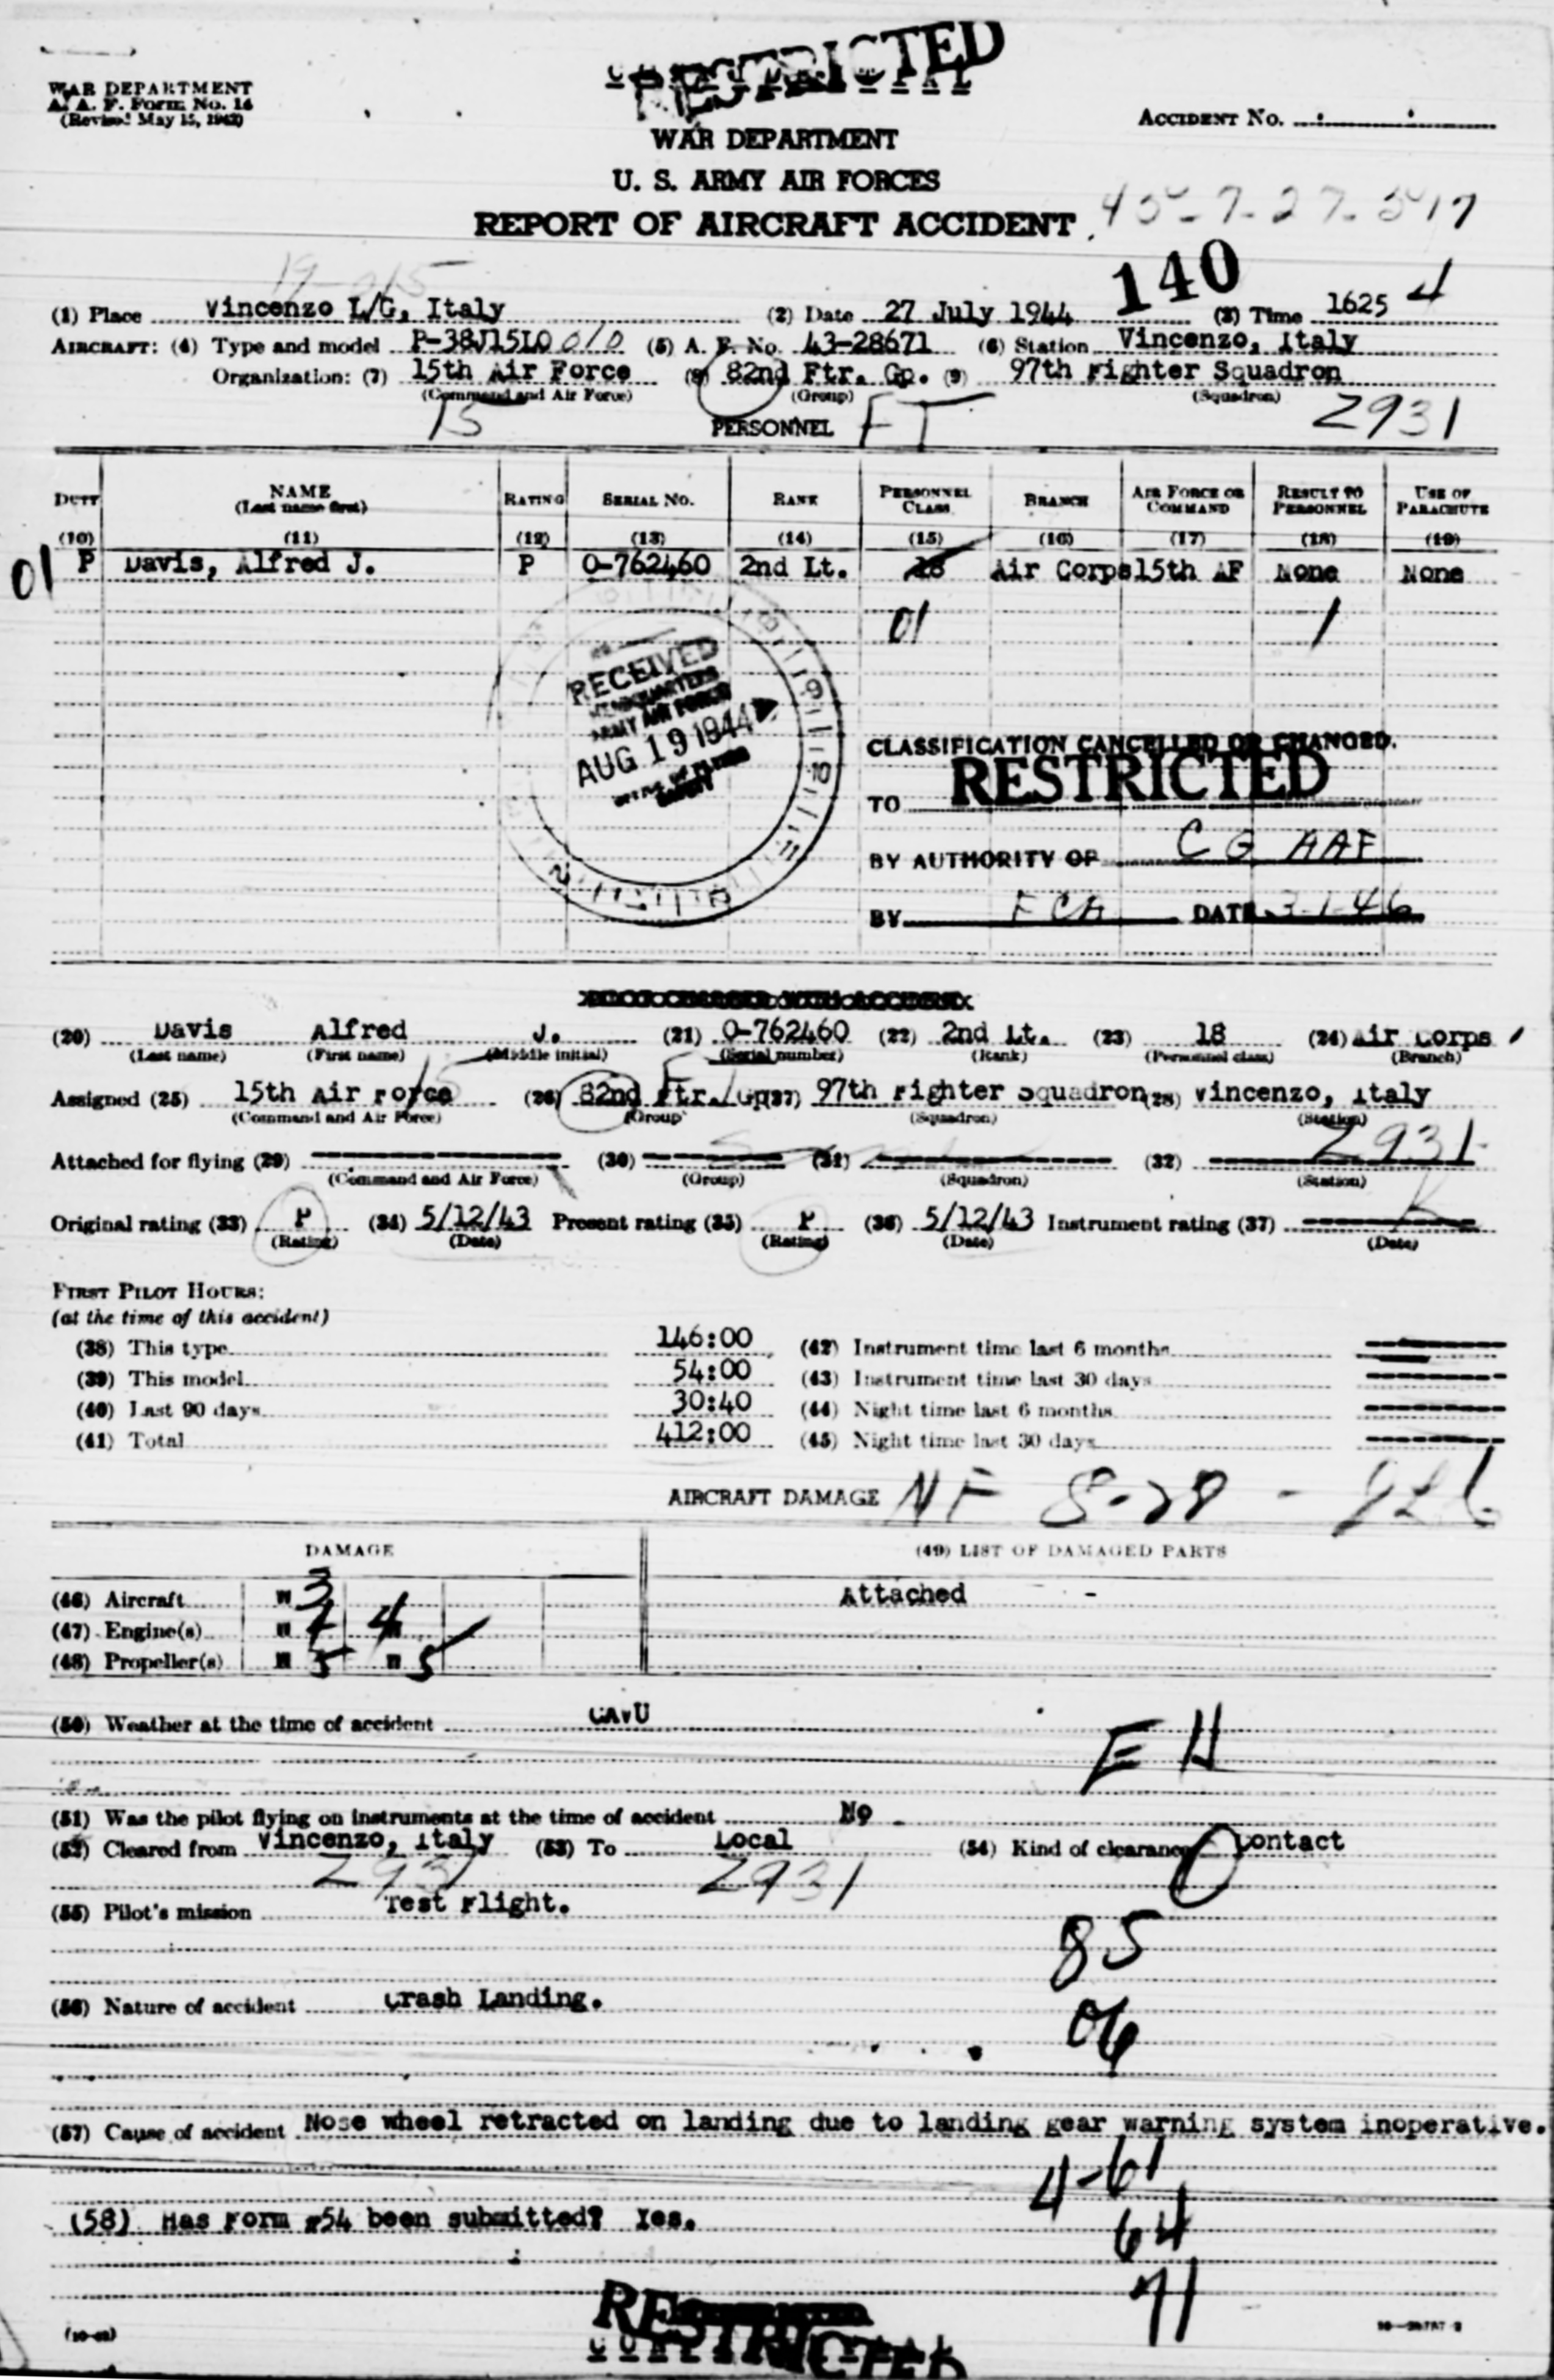 RESTRICTED
WAR DEPARTMENT
A. A. F. Form No. 14
(Revised May 15, 1942)
ACCIDENT No.
WAR DEPARTMENT
U. S. ARMY AIR FORCES
REPORT OF AIRCRAFT ACCIDENT
140
(1) Place Vincenzo L/G, Italy (2) Date 27 July 1944 (3) Time 1625 4
AIRCRAFT: (4) Type and model P-38J15LO 010 (5) A. F. No. 43-28671 (6) Station Vincenzo, Italy
Organization: (7) 15th Air Force (8) 82nd Ftr. Gp. (9) 97th Fighter Squadron
(Command and Air Force) (Group) (Squadron)
15 PERSONNEL FT 2931
DUTY NAME (Last name first) RATING SERIAL No. RANK PERSONNEL CLASS BRANCH AIR FORCE OR COMMAND RESULT TO PERSONNEL USE OF PARACHUTE
(10) (11) (12) (13) (14) (15) (16) (17) (18) (19)
01 P Davis, Alfred J. P O-762460 2nd Lt. 18 Air Corps 15th AF None None
01 1
RECEIVED
HEADQUARTERS
ARMY AIR FORCE
AUG 19 1944
CLASSIFICATION CANCELLED OR CHANGED.
TO RESTRICTED
BY AUTHORITY OF C G AAF
BY FCA DATE 3-1-46
(20) Davis Alfred J. (21) O-762460 (22) 2nd Lt. (23) 18 (24) Air Corps
(Last name) (First name) (Middle initial) (Serial number) (Rank) (Personnel class) (Branch)
Assigned (25) 15th Air Force (26) 82nd Ftr. Gp (27) 97th Fighter Squadron (28) Vincenzo, Italy
(Command and Air Force) (Group) (Squadron) (Station)
2931
Attached for flying (29) (30) (31) (32)
(Command and Air Force) (Group) (Squadron) (Station)
Original rating (33) P (34) 5/12/43 Present rating (35) P (36) 5/12/43 Instrument rating (37)
(Rating) (Date) (Rating) (Date) (Date)
FIRST PILOT HOURS:
(at the time of this accident)
(38) This type 146:00 (42) Instrument time last 6 months
(39) This model 54:00 (43) Instrument time last 30 days
(40) Last 90 days 30:40 (44) Night time last 6 months
(41) Total 412:00 (45) Night time last 30 days
AIRCRAFT DAMAGE NF 8-28
DAMAGE (49) LIST OF DAMAGED PARTS
(46) Aircraft 3 Attached -
(47) Engine(s) 4 4
(48) Propeller(s) 5 5
(50) Weather at the time of accident CAVU
EH
(51) Was the pilot flying on instruments at the time of accident No
(52) Cleared from Vincenzo, Italy (53) To Local (54) Kind of clearance Contact
2931 2931
(55) Pilot's mission Test Flight.
85
(56) Nature of accident Crash Landing.
06
(57) Cause of accident Nose wheel retracted on landing due to landing gear warning system inoperative.
4-61
(58) Has Form #54 been submitted? Yes.
64
71
RESTRICTED